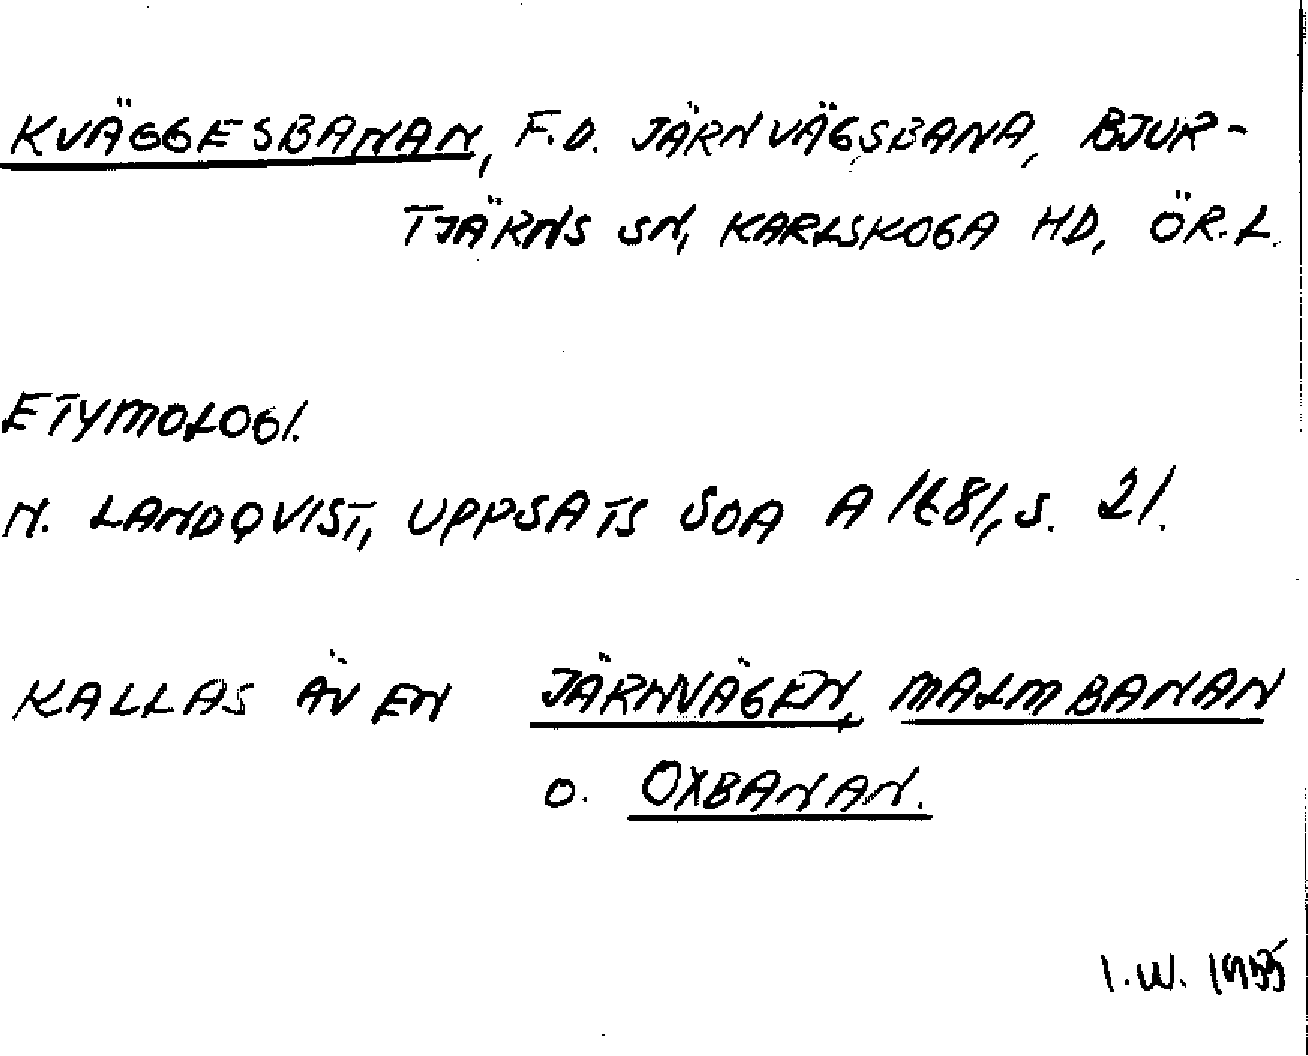 KVÄGGESBANAN, F.D. JÄRNVÄGSBANA, BJUR-
TJÄRNS SN, KARLSKOGA HD, ÖR.L.
ETYMOLOGI.
N. LANDQVIST, UPPSATS SOA A 1681, S. 21.
KALLAS ÄVEN JÄRNVÄGEN, MALMBANAN
O. OXBANAN.
I.W. 1955